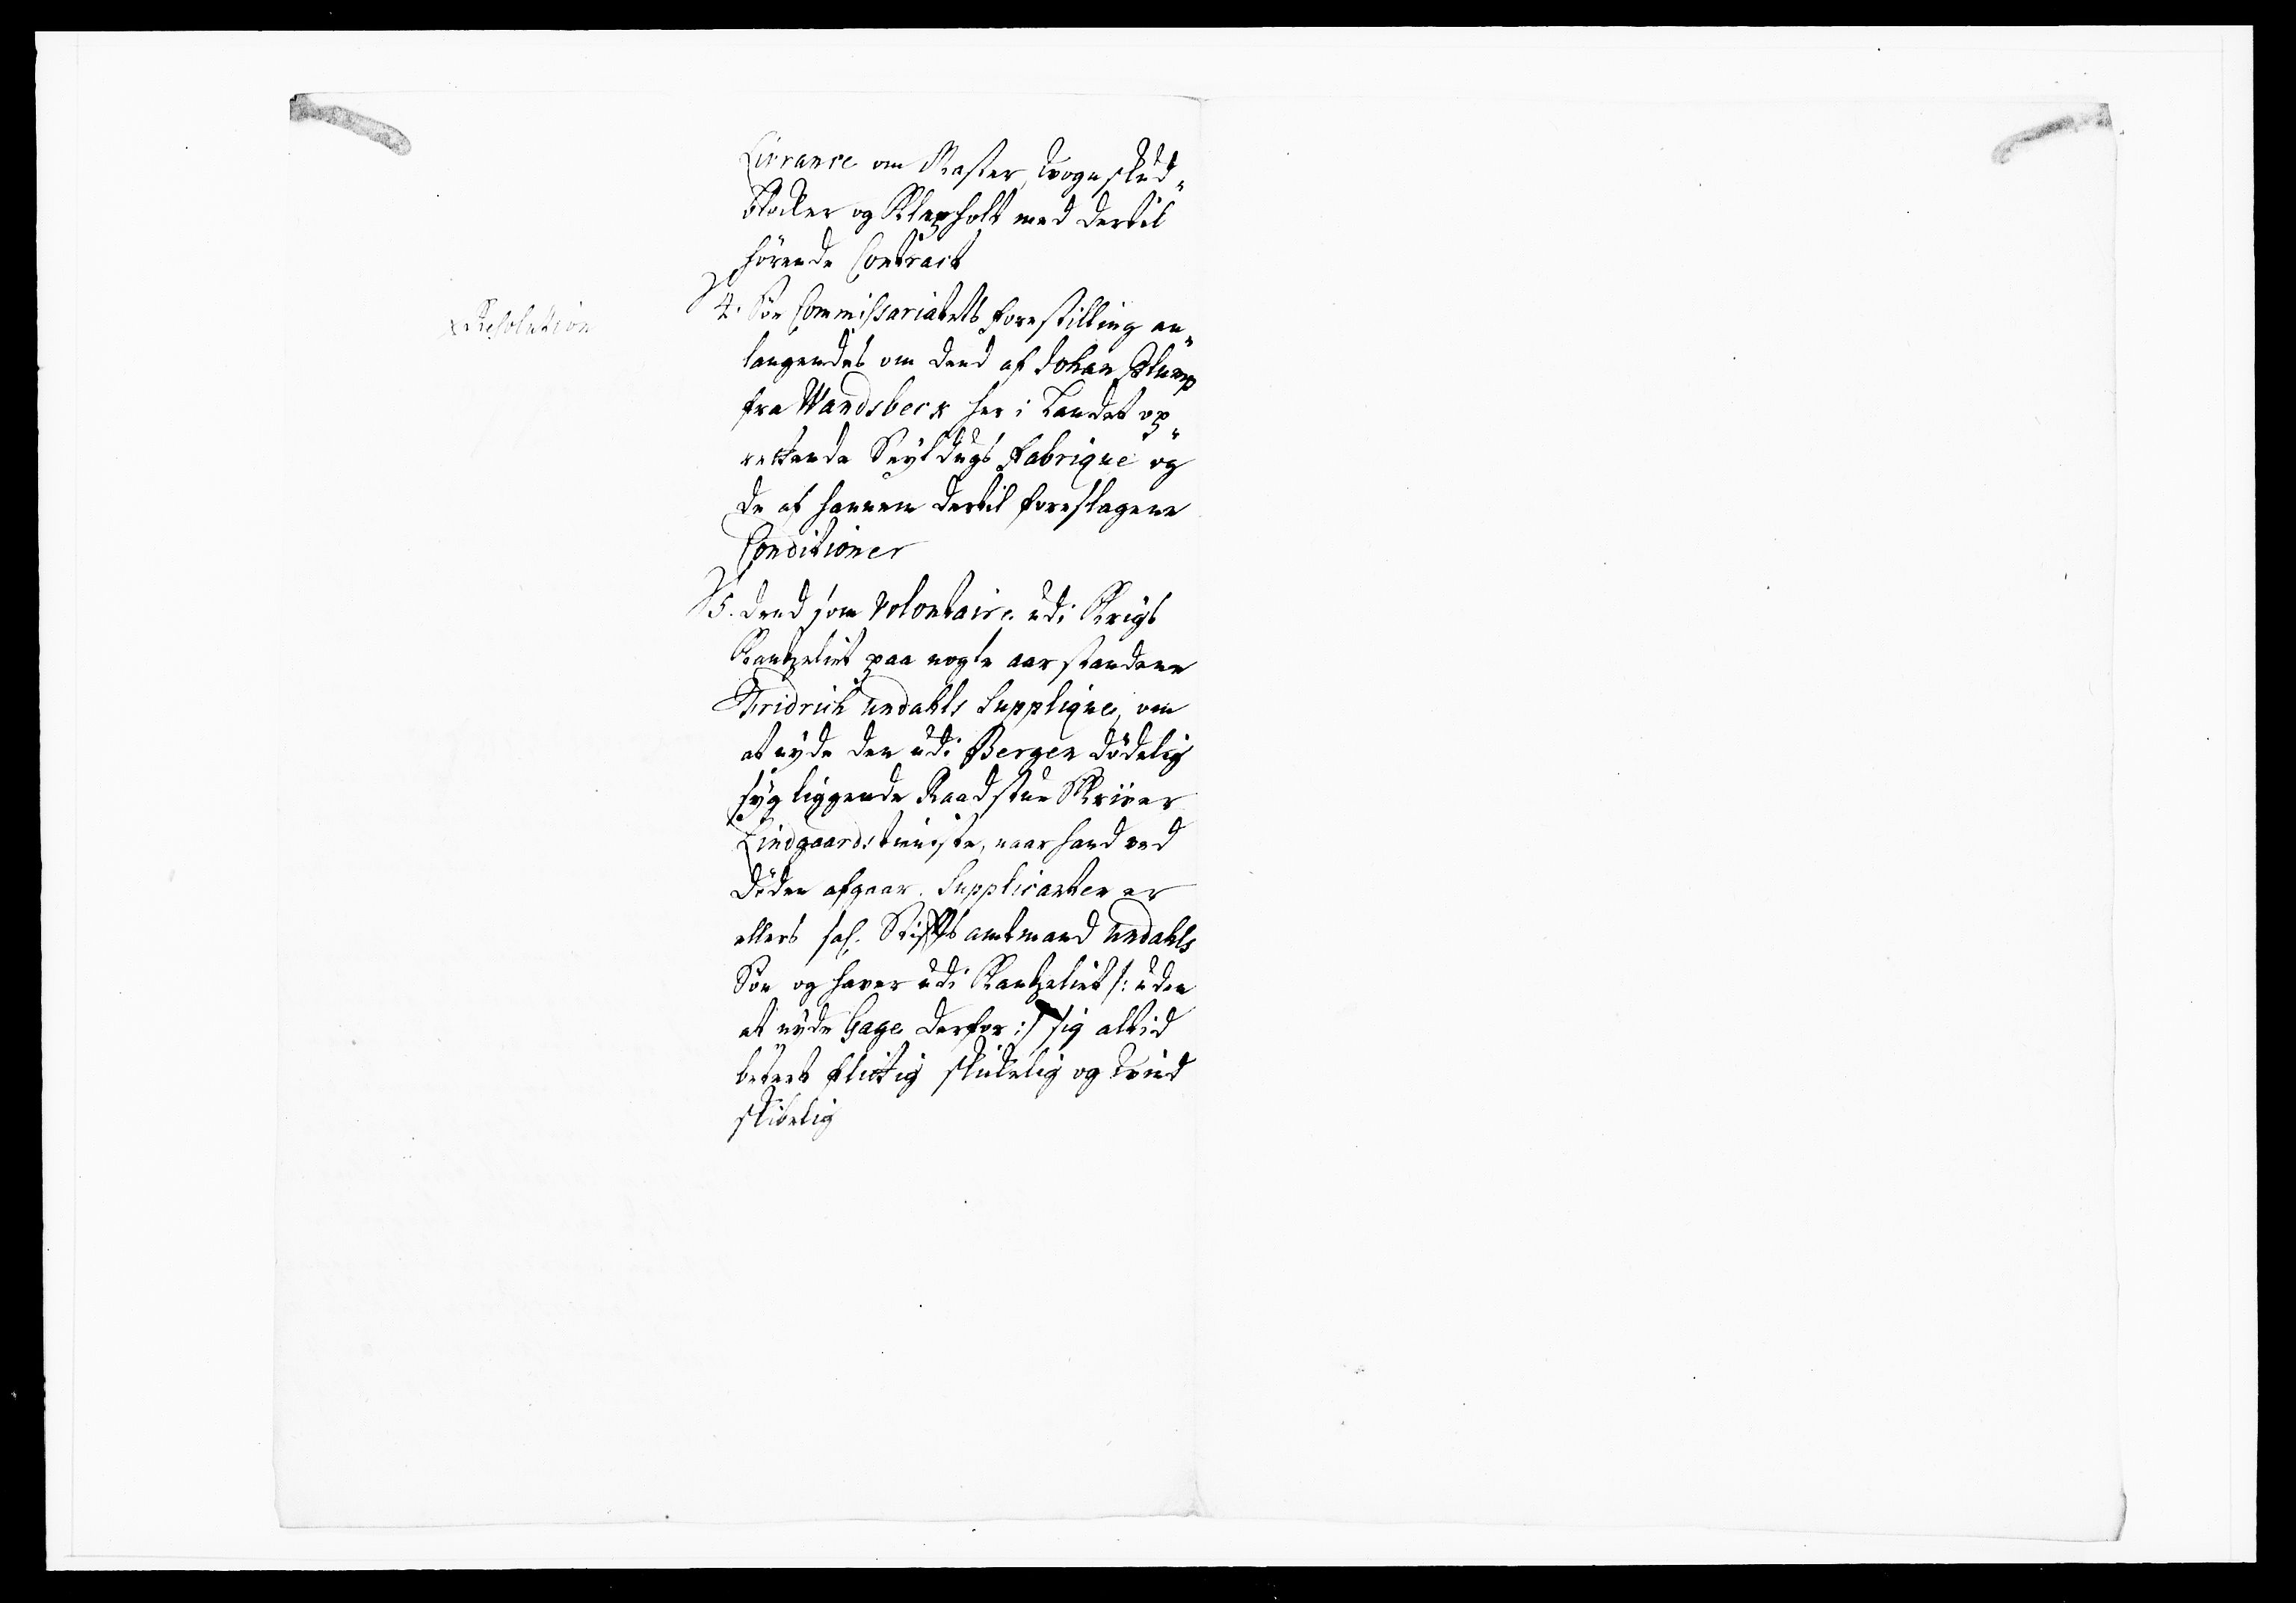 Livrance om Master, Vognskud„
blocker og Klapholt med dertil
hörende Contract
x Resolution
4. Söe Commissariatets forestilling an„
langendes om dend af Johan Plump
fra Wandsbeck her i Landet op„
rettende Seyldugs Fabrique og
de af hannem dertil foreslagene
Conditioner
5. Dend som Volontaire udi Krigs
Kantzeliet paa nogle aar standene
Fridrich Undahls Supplique, om
at nyde den udi Bergen dödelig
syg liggende Raadstue Skriver
Lindgaards tieniste, naar hand ved
Döden afgaar. Supplicanten er
ellers sal. Stiftsamtmand Undahls
Sön og haver udi Kantzeliet /: uden
at nyde Gage derfor :/ sig altid
beteet flittig skickelig og Vind
skibelig